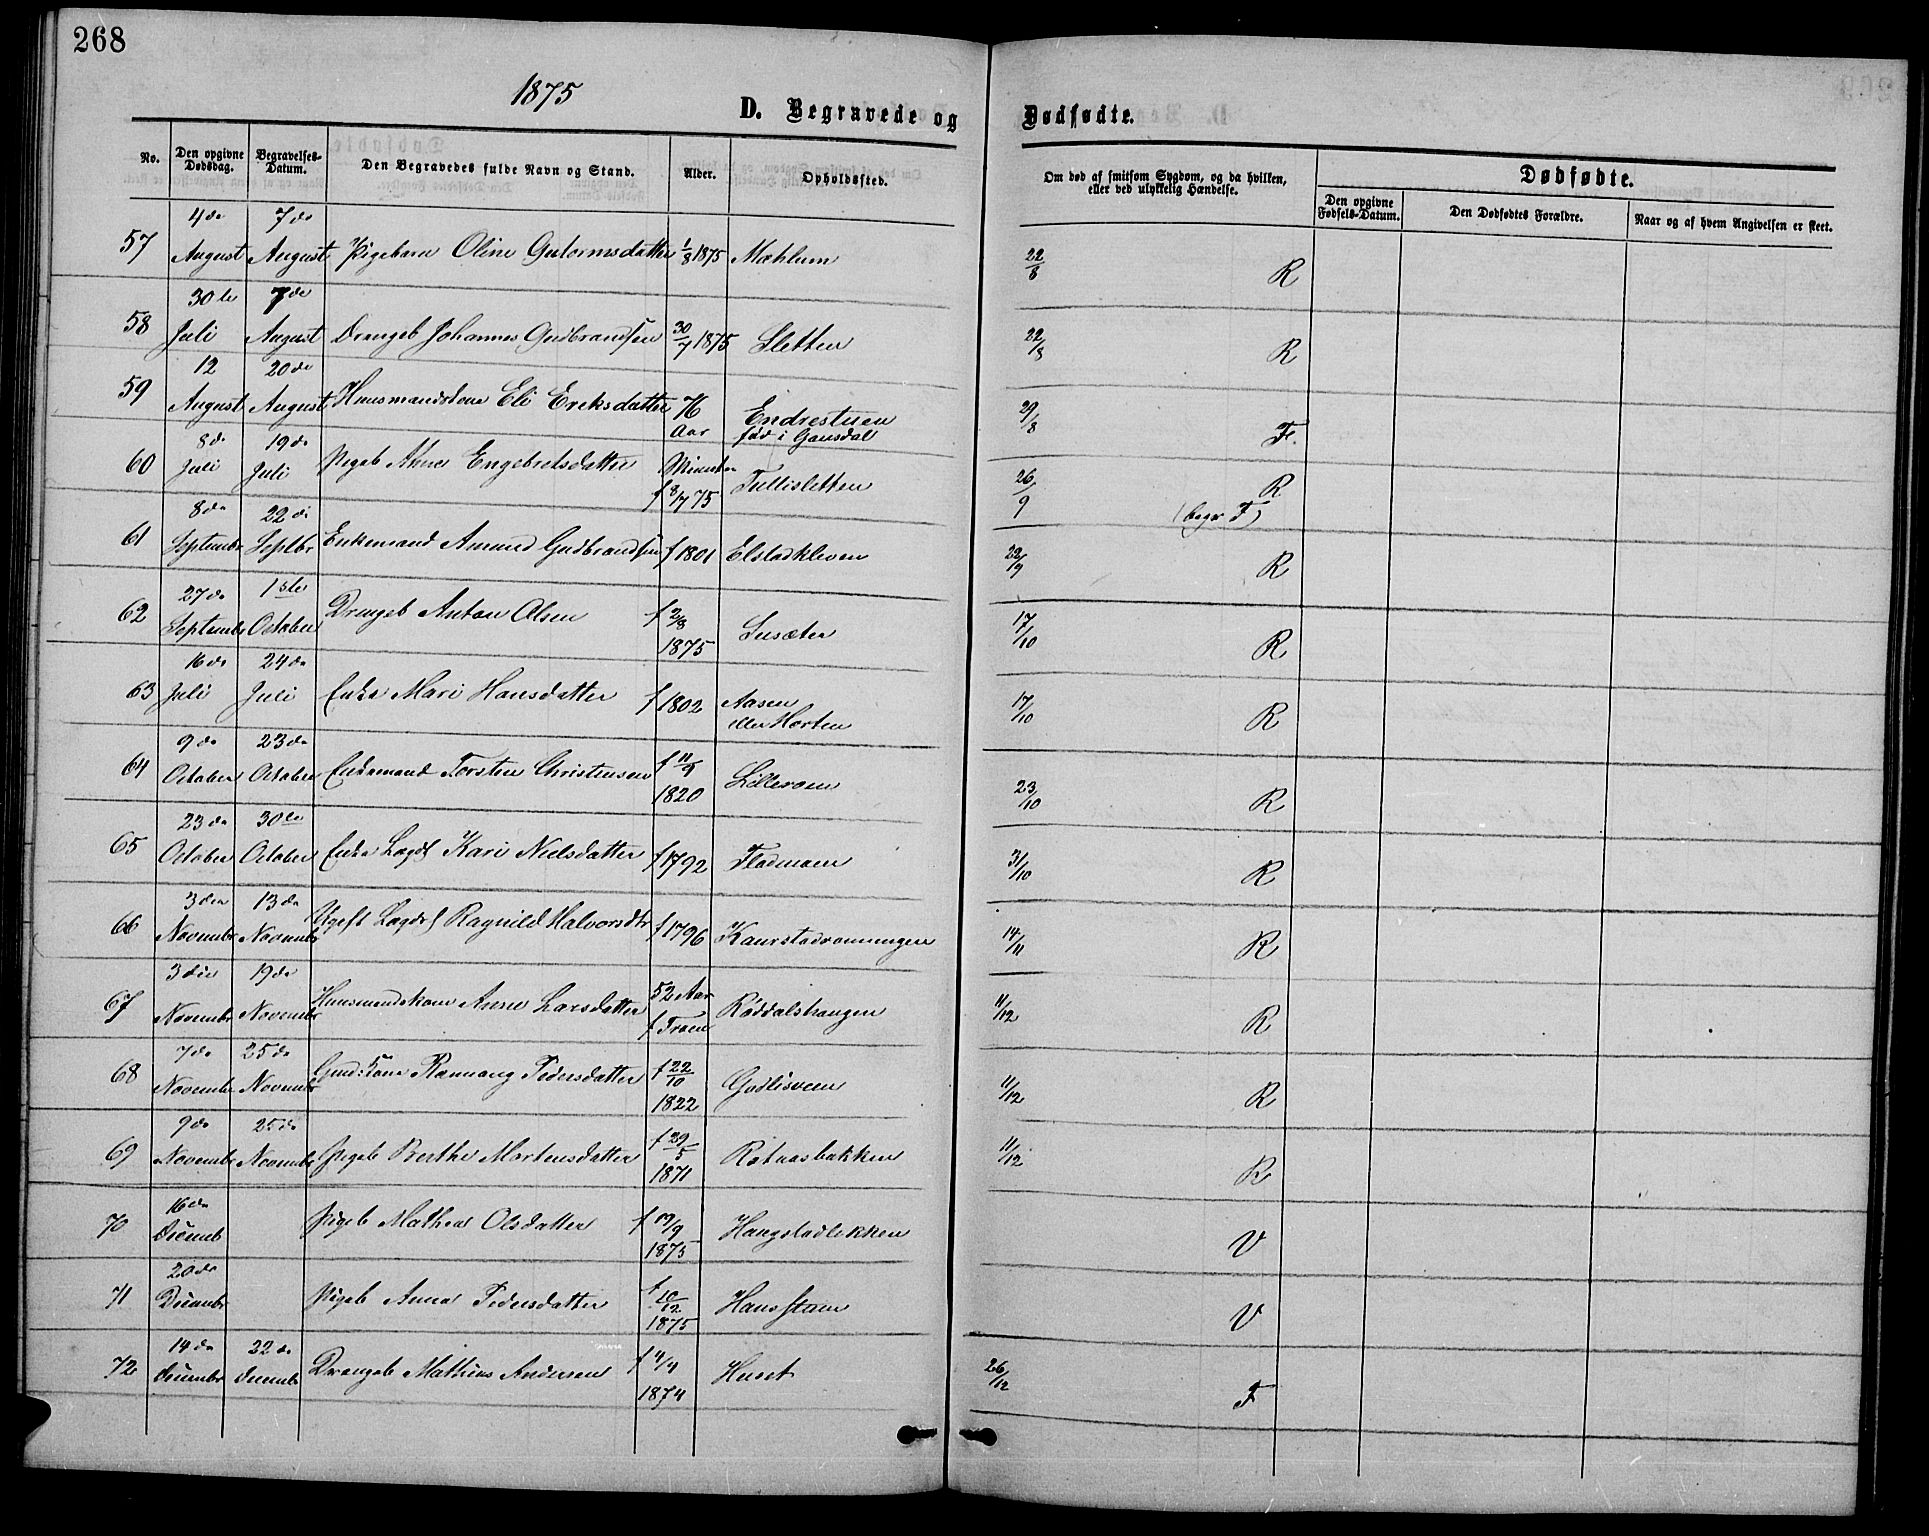 268
1875
D. Begravede og Dødfødte.
No. Den opgivne Dødsdag. Begravelses-Datum. Den Begravedes fulde Navn og Stand. Alder. Opholdssted. Om død af smitsom Sygdom, og da hvilken, eller ved ulykkelig Hændelse. Dødfødte.
Den opgivne Fødsels-Datum. Den Dødfødtes Forældre. Naar og af hvem Angivelsen er skeet.
57 4de August 7de August Pigebarn Oline Gutormsdatter 1/8 1875 Mæhlum 22/8 R
58 30te Juli 7de August Drengeb Johannes Gudbrandsen 30/7 1875 Sletten 22/8 R
59 12 August 20de August Huusmandskone Eli Eriksdatter 76 Aar Endrestuen 29/8 F.
født i Gausdal
60 8de Juli 19de Juli Pigeb Anne Engebretsdatter f 8/7 75 Tullisletten 26/9 R
(begr F)
61 8de Septembr 22de Septbr Enkemand Amund Gudbrandsen f 1801 Elstadkleven 29/9 R
62 27de Septembr 1ste October Drengeb Anton Olsen f 2/8 1875 Susæter 17/10 R
63 16de Juli 24de Juli Enke Mari Hansdatter f 1802 Aasen 17/10 R
eller Horten
64 9de October 23de October Enkemand Torsten Christensen f 11/9 1820 Lilleroen 23/10 R
65 23de October 30te October Enke Lægdsl Kari Nielsdatter f 1792 Fladmoen 31/10 R
66 3die Novembr 13de Novembr Ugift Lægdsl Ragnild Halvorsdtr f 1796 Kaurstadrønningen 14/11 R
67 3die Novembr 19de Novembr Huusmandskone Anne Larsdatter 52 Aar Røddalshaugen 11/12 R
68 7de Novembr 25de Novembr Gmd: Kone Rannaug Pedersdatter f 22/10 1822 Godlisveen 11/12 R
69 9de Novembr 25de Novembr Pigeb Berthe Mortensdatter f 29/5 1871 Rotaasbakken 11/12 R
70 16de Decemb Pigeb Mathea Olsdatter f 19/9 1875 Haugstadlykken V
71 20de Decembr Pigeb Anna Pedersdatter f 10/12 1875 Hansstuen V
72 14de Decembr 22de Decemb Drengeb Mathias Andersen f 4/4 1874 Huset 26/12 F